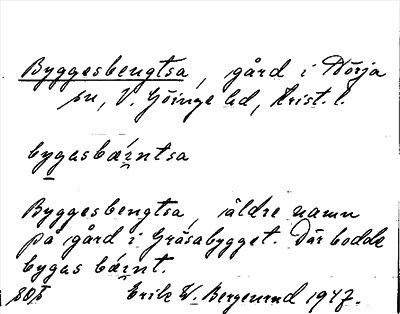 Byggesbengtsa, gård i Norja
sn, V. Göinge hd, Krist. l.
bygasbærntsa
Byggesbengtsa, äldre namn
på gård i Gråsabygget. Där bodde
bygas bærnt.
Erik W. Bergenrud 1947.